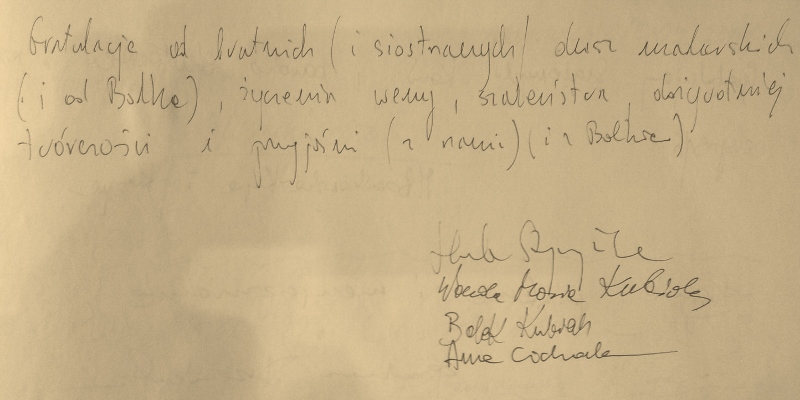 Gratulacje od bratnich (i siostrzanych) dusz malarskich
(i od Bolka), życzenia weny, szaleństwa, dozgonnej
twórczości i przyjaźni (z nami) (i z Bolkiem)
Wanda Maria Kubiak
Bolek Kubiak
Anna